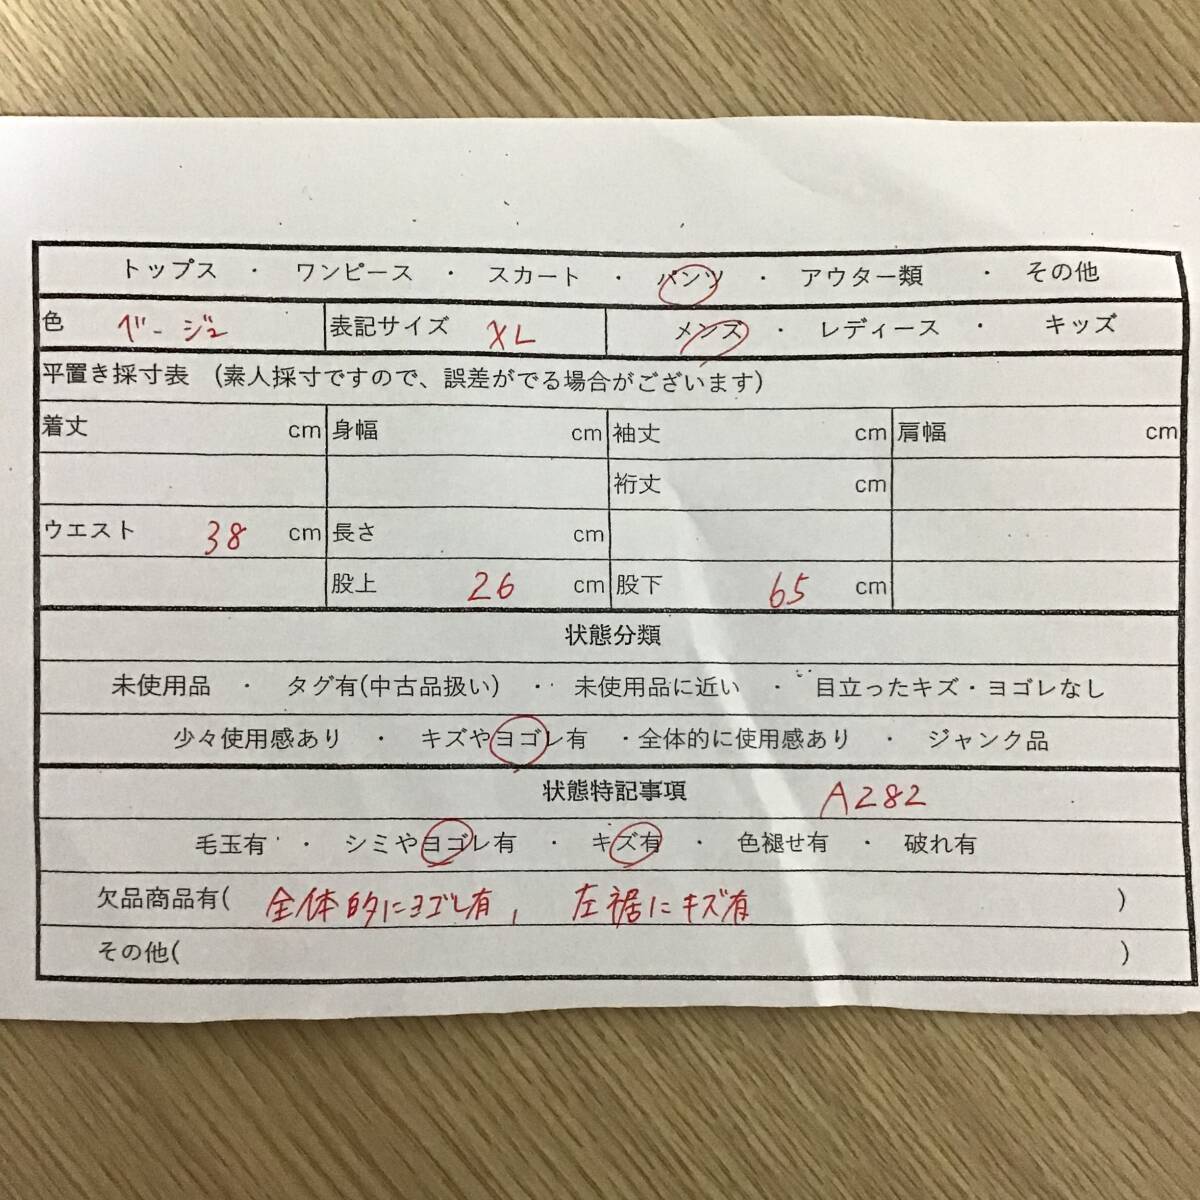 トップス ・ ワンピース ・ スカート ・ パンツ ・ アウター類 ・ その他
色 ベージュ 表記サイズ XL メンズ ・ レディース ・ キッズ
平置き採寸表 (素人採寸ですので、誤差がでる場合がございます)
着丈 cm 身幅 cm 袖丈 cm 肩幅 cm
裄丈 cm
ウエスト 38 cm 長さ cm
股上 26 cm 股下 65 cm
状態分類
未使用品 ・ タグ有(中古品扱い) ・ 未使用品に近い ・ 目立ったキズ・ヨゴレなし
少々使用感あり ・ キズやヨゴレ有 ・全体的に使用感あり ・ ジャンク品
状態特記事項 A282
毛玉有 ・ シミやヨゴレ有 ・ キズ有 ・ 色褪せ有 ・ 破れ有
欠品商品有( 全体的にヨゴレ有, 左裾にキズ有 )
その他( )